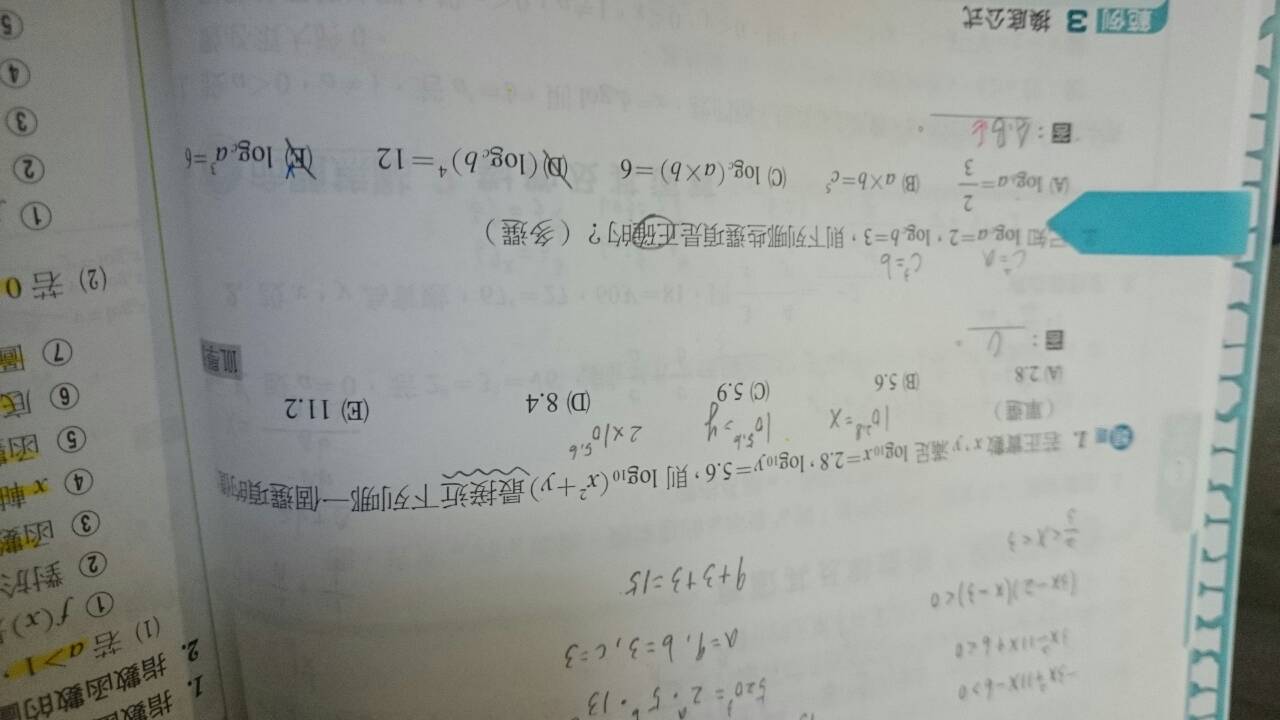 -3x²+11x-6>0
3x²-11x+6<0
(3x-2)(x-3)<0
2/3<x<3
520=2·5·13
a=9, b=3, c=3
9+3+3=15
1. 若正實數 x,y 滿足 log₁₀x=2.8,log₁₀y=5.6,則 log₁₀(x²+y)最接近下列哪一個選項的值
(單選)
10^2.8=x
10^5.6=y
2×10^5.6
(A) 2.8 (B) 5.6 (C) 5.9 (D) 8.4 (E) 11.2
答:C。
c²=a
c³=b
知 log_c a=2,log_c b=3,則下列哪些選項是正確的?(多選)
(A) log_b a=2/3 (B) a×b=c⁵ (C) log_c(a×b)=6 (D) (log_c b)⁴=12 (E) log_c a³=6
答:A.B.E。
範例 3 換底公式
1. 指數
2. 指數函數的圖
(1) 若 a>1,
① f(x)
② 對於
③ 函數
④ x 軸
⑤ 函數
⑥ 底
⑦ 圖
(2) 若 0
①
②
③
④
⑤